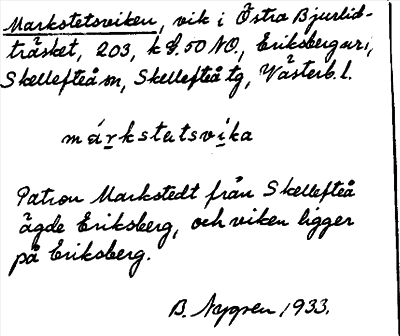 Markstetsviken, vik i Östra Bjurlid-
träsket, 203, k 8.50 NO, Eriksberg
Skellefteå sn, Skellefteå tg, Västerb. l.
márkstatsvika
Patron Markstedt från Skellefteå
ägde Eriksberg, och viken ligger
på Eriksberg.
B. Nygren 1933.